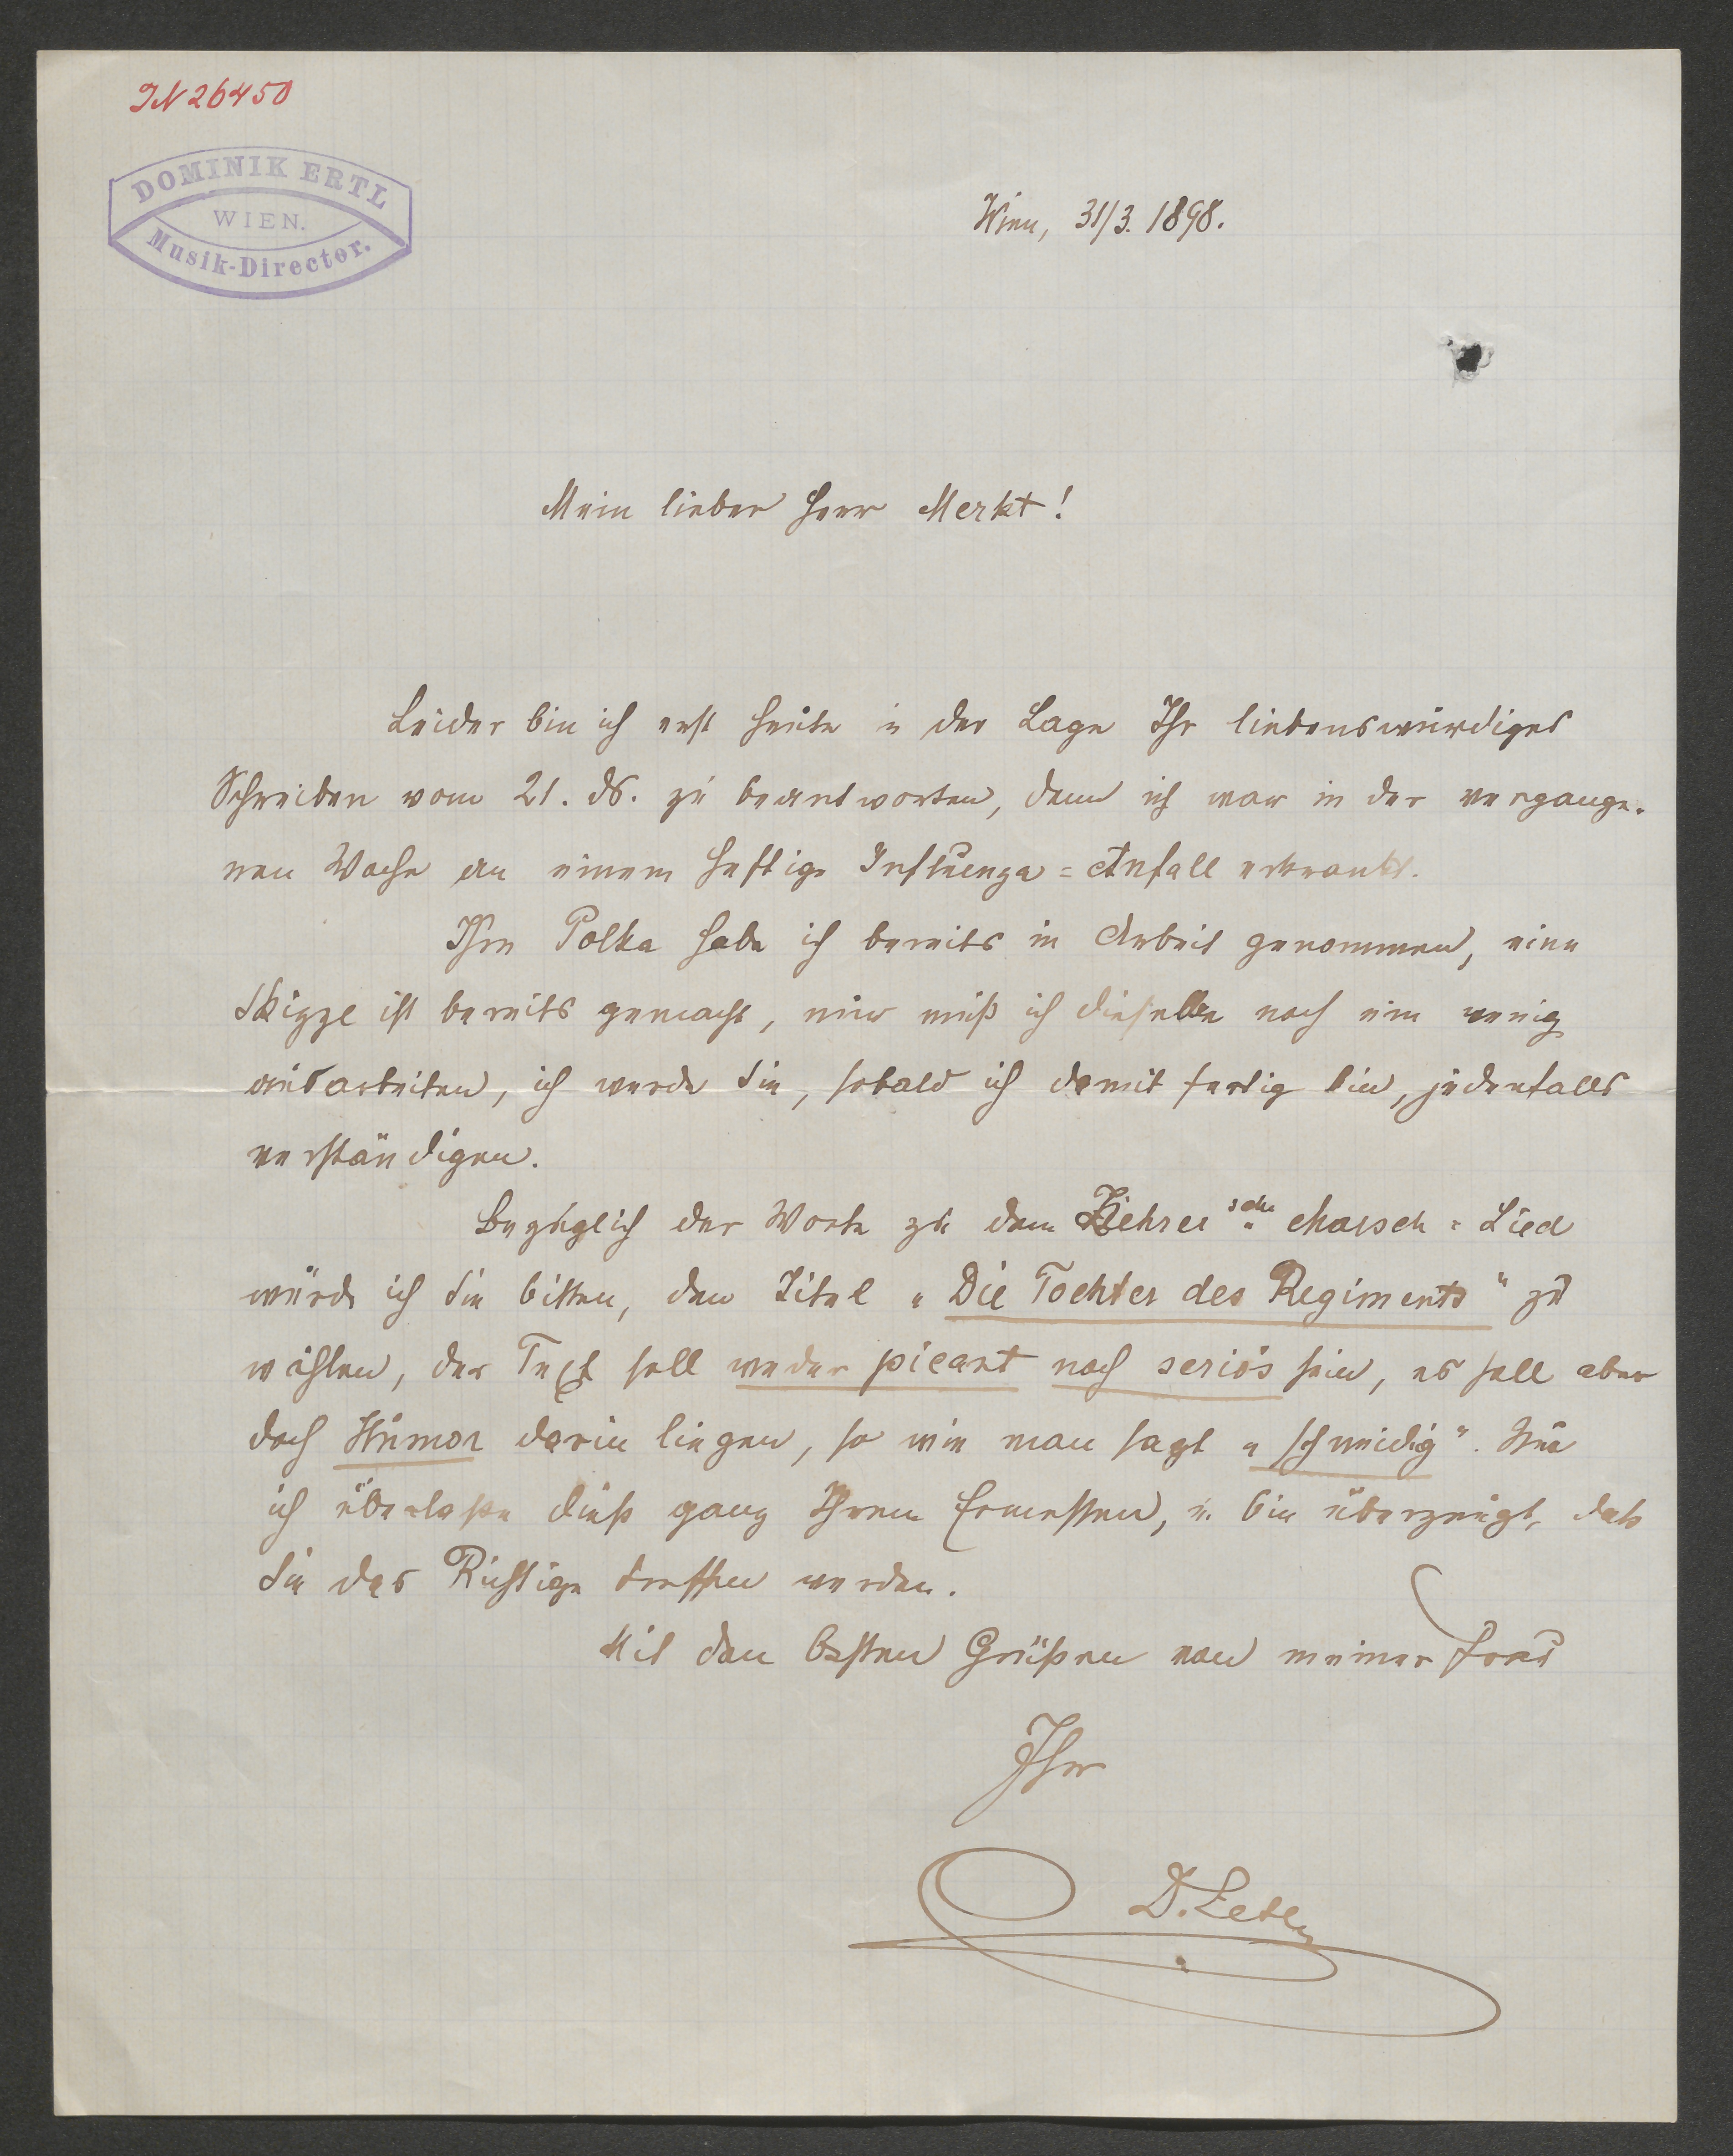 IN 26450
DOMINIK ERTL
WIEN.
Musik-Director.
Wien, 31/3. 1898.
Mein lieber Herr Merkt!
Leider bin ich erst heute in der Lage Ihr liebenswürdiges
Schreiben vom 21. ds. zu beantworten, denn ich war in der vergange-
nen Woche an einem heftige Influenza=Anfall erkrankt.
Ihre Polka habe ich bereits in Arbeit genommen, eine
Skizze ist bereits gemacht, nur muß ich dieselbe noch ein wenig
ausarbeiten, ich werde Sie, sobald ich damit fertig bin, jedenfalls
verständigen.
Bezüglich der Worte zu dem Ziehrer'sche Marsch=Lied
würde ich Sie bitten, den Titel „Die Tochter des Regiments" zu
wählen, der Text soll weder picant noch seriös sein, es soll aber
doch Humor darin liegen, so wie man sagt „schneidig". Nur
ich überlaße dieß ganz Ihrem Ermessen, u. bin überzeugt, daß
Sie das Richtige treffen werden.
Mit den besten Grüßen von meiner Frau
Ihr
D. Ertl